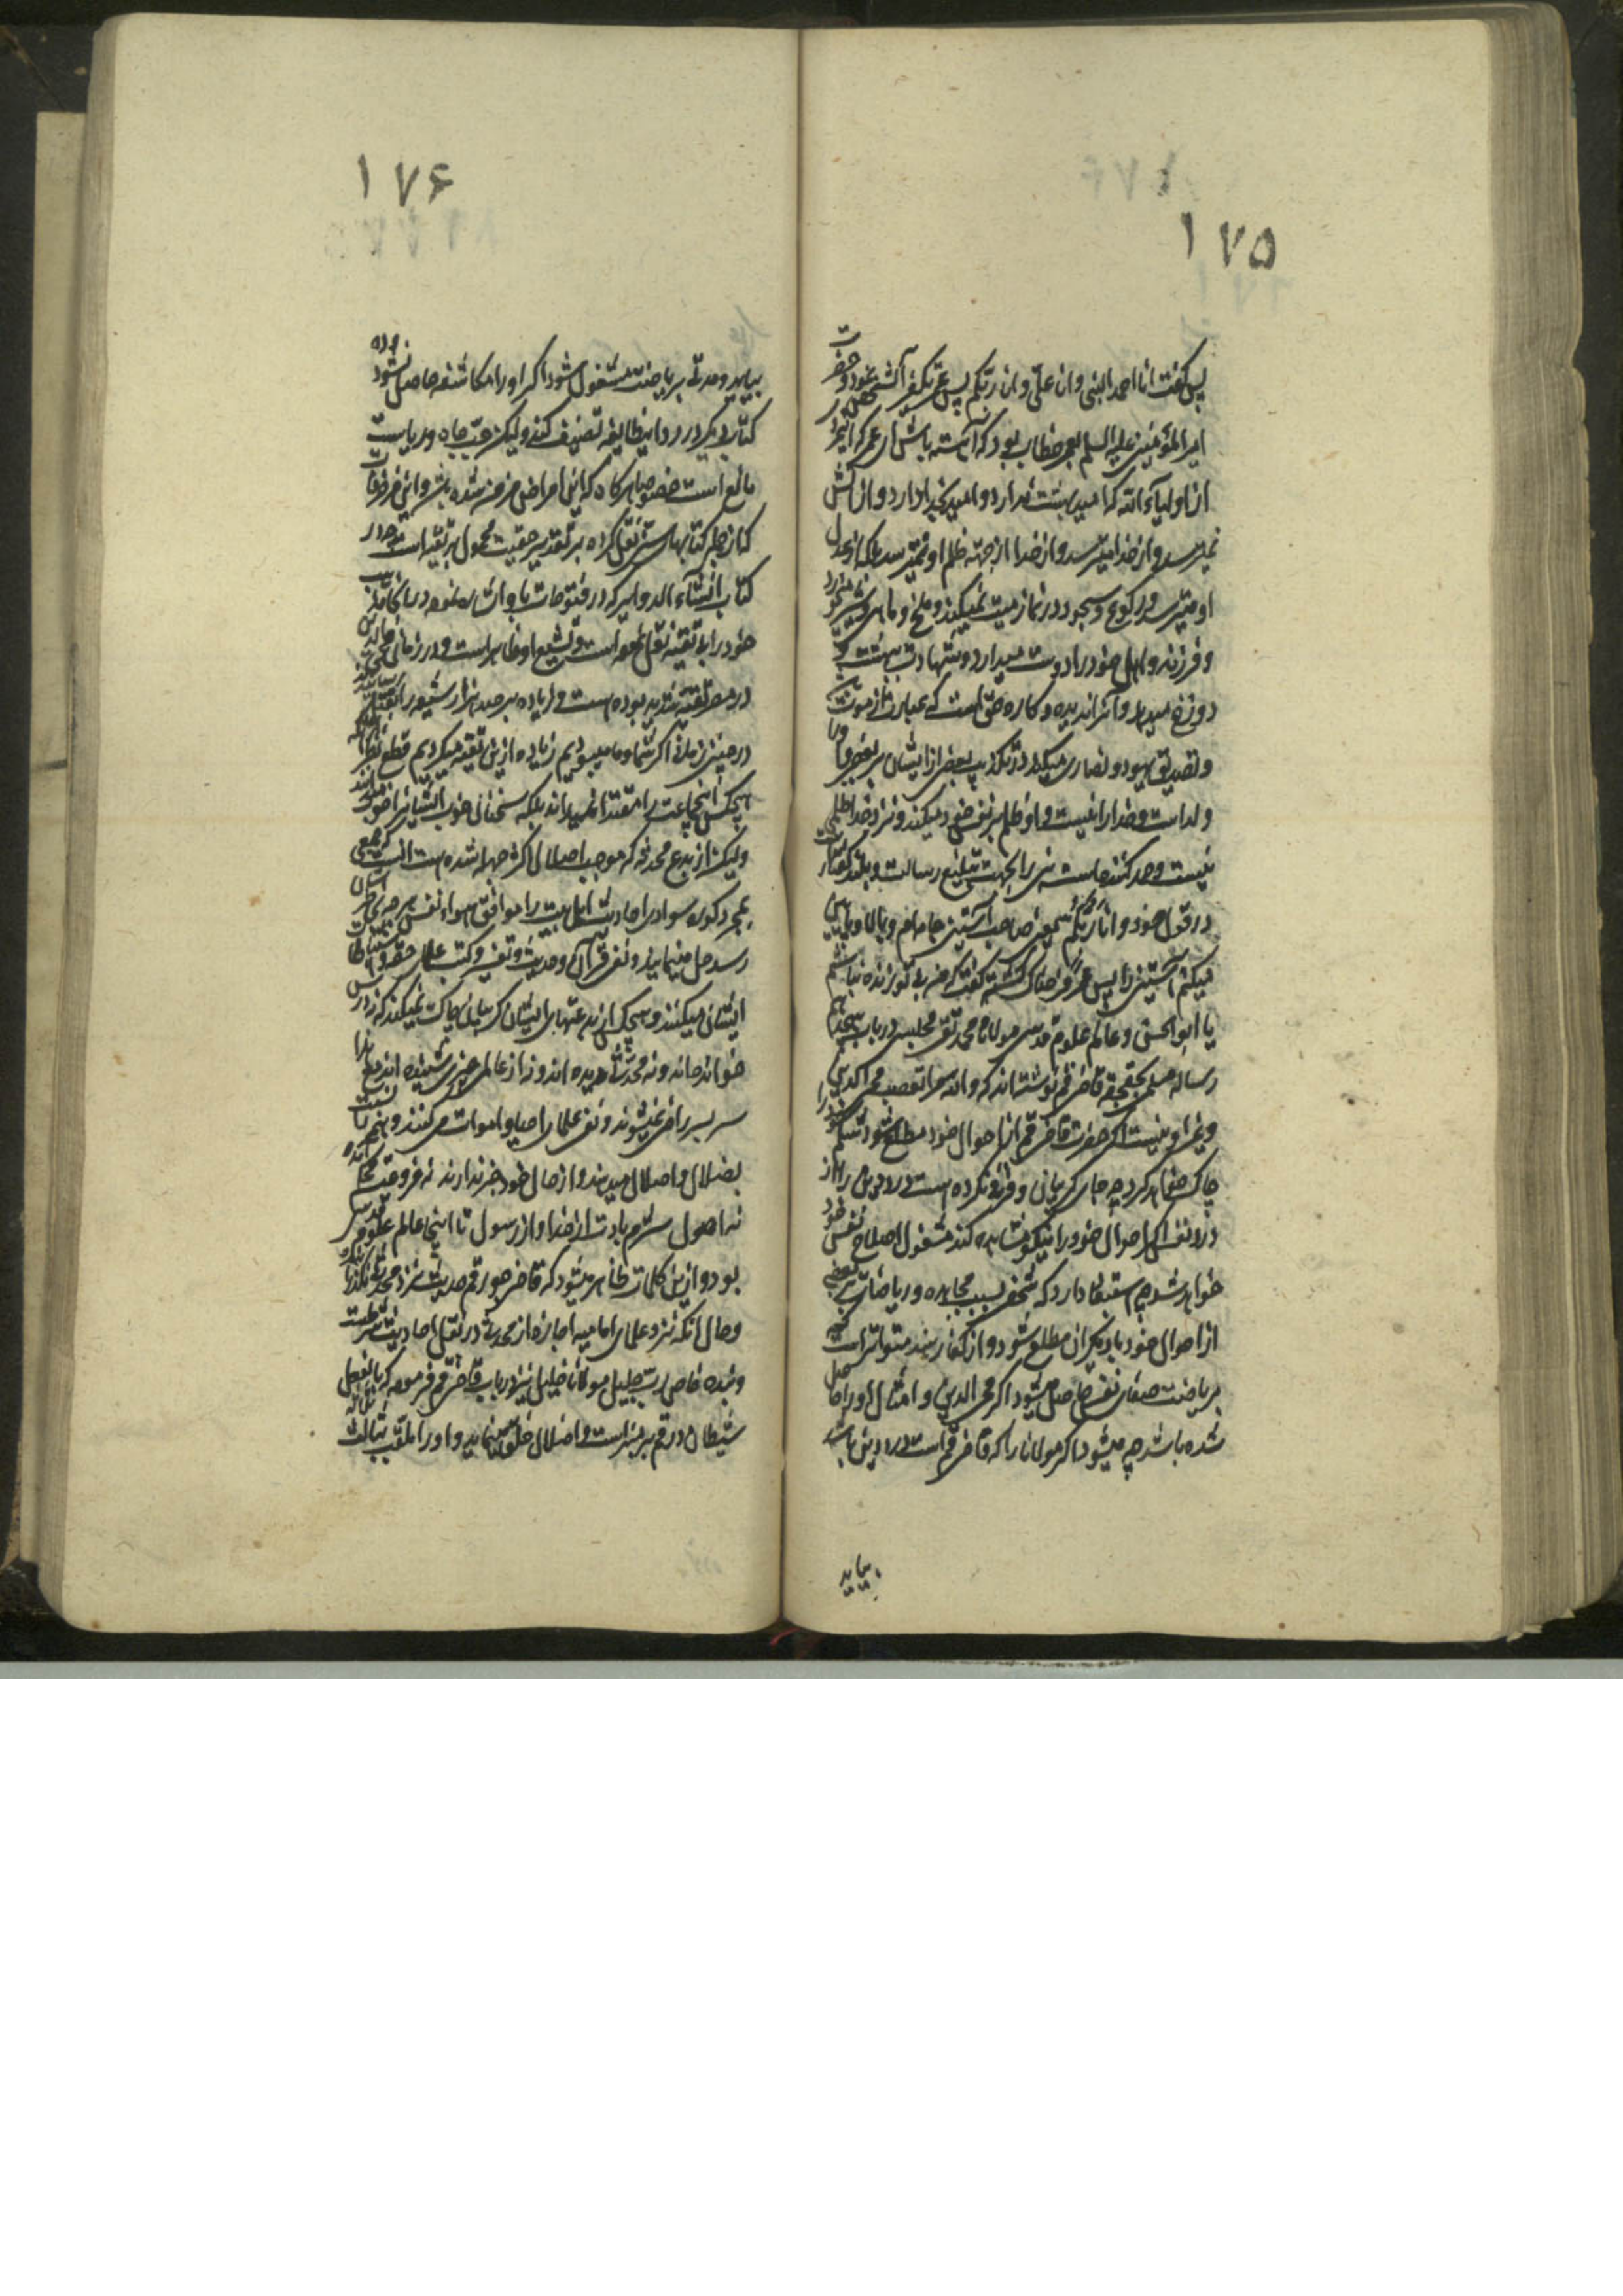 ۱۷۵
پس گفت انا احمد النبی وان علی وان ربکم پس عمر تکفیر آنشخص نمود و حضرت
امیر المؤمنین علیه السلم بعمر خطاب نمود که آهسته باش ای عمر که این مرد
از اولیاء الله که امید بهشت ندارد و امید بخدا دارد و از آتش
نمیترسد و از خدا میترسد و از خدا از جهة ظلم او نمیترسد بلکه از عدل
او میترسد و رکوع و سجود در نماز میت نمیکند و ملخ و ماهی میخورد
و فرزند و اهل خود را دوست میدارد و شهادت بهشت و
دوزخ میدهد و آنرا ندیده و کاره حق است که عبارت از موت
و تصدیق یهود و نصاری میکند در تکذیب بعضی از ایشان بر بعضی و او را
ولد است و خدا را نیست و او ظلم بر نفس خود میکند و نزد خدا ظلمی
نیست و حمد کننده است نبی را بجهت تبلیغ رسالت و بلند
در قول خود و انا ربکم یعنی صاحب آستین جامه ام و بالا و پایین
میکنم آستین را پس عمر فرحناک گشته گفت که من بی تو زنده نباشم
یا ابو الحسن و عالم علوم قدسی مولانا محمد تقی مجلسی در باب
رساله قاضی قم نوشته اند که والله مرا تعصب محی الدین
و غیر او نیست اگر حضرت قاضی قم از احوال خود مطلع شود شکم خود را
چاک خواهد کرد چه جای گریبان و فرو کرده است در دین
احوال خود را نیکو مشاهده کند مشغول اصلاح نفس خود
خواهد شد چه استبعاد دارد که شخصی بسبب مجاهده و ریاضات بعضی
از احوال خود یا دیگران مطلع شود و از کفار هند متواتر است که
بریاضت صفای نفس حاصل میشود اگر محی الدین و امثال او را حاصل
شده باشد چه میشود اگر مولانا را که قاضی قم است درد دین باشد
بیاید
۱۷۶
بیاید و مدتی بریاضت مشغول شود اگر او را مکاشفه حاصل نشود
کتاب دیگر در رد اینطایفه تصنیف کند ولیکن حب جاه و ریاست
مانع است خصوصا هرگاه که این امراض مزمنه شده باشد و این مزخرفات
که از جمله کتابهای نقل کرده بر تقدیر حقیت محمول بر تقیه است و در
کتاب انشاء الدوایر که در فتوحات باو اشاره نموده در آنجا مذهب
خود را بلا تقیه نقل نموده است و تشیع او ظاهر است و در زمان محی الدین
در مصر تقیه شدید بوده است و زیاده بر صد هزار شیعه را بقتل
در چنین زمانی اگر شما و ما میبودیم زیاده ازین تقیه میکردیم قطع نظر از آنکه
هیچکس این جماعت را مقتدا نمیداند بلکه سخنان خوب ایشانرا خوب میدانند
ولیکن از بدع محدثه که موجب اضلال اکثر جهله شده است آنست که جمعی
بمجرد کوره سوادی احادیث اهل بیت را موافق هواء نفس هر چه بخاطر ایشان
رسد حل مینمایند و نفی قرآن و حدیث و تفسیر و کتب علمای
ایشان میکنند و هیچکس ازین بدعتهای ایشان گریبان چاک نمیکند که نه درس
خوانده اند و نه محدثی دیده اند و نه از عالمی چیزی شنیده اند مع هذا
سر بسر راضی نمیشوند و نفی علمای احیا و اموات می کنند و همه را نسبت
بضلال و اضلال میدهند و از حال خود خبر ندارند نه فروعت بجا
نه اصول شرم بادت از خدا و از رسول تا اینجا عالم علوم قدسی
بود و ازین کلمات ظاهر میشود که قاضی جور قم حدیث نزد محدثی نگذرانده
و حال آنکه نزد علمای امامیه اجازه از محدثی در نقل احادیث شرطست
و بنده خاص رب جلیل مولانا خلیل نیز در باب قاضی قم فرموده که بالفعل
شیطان در قم بر منبر است و اضلال خلق مینماید و او را ملقب بثالث ثلاثه